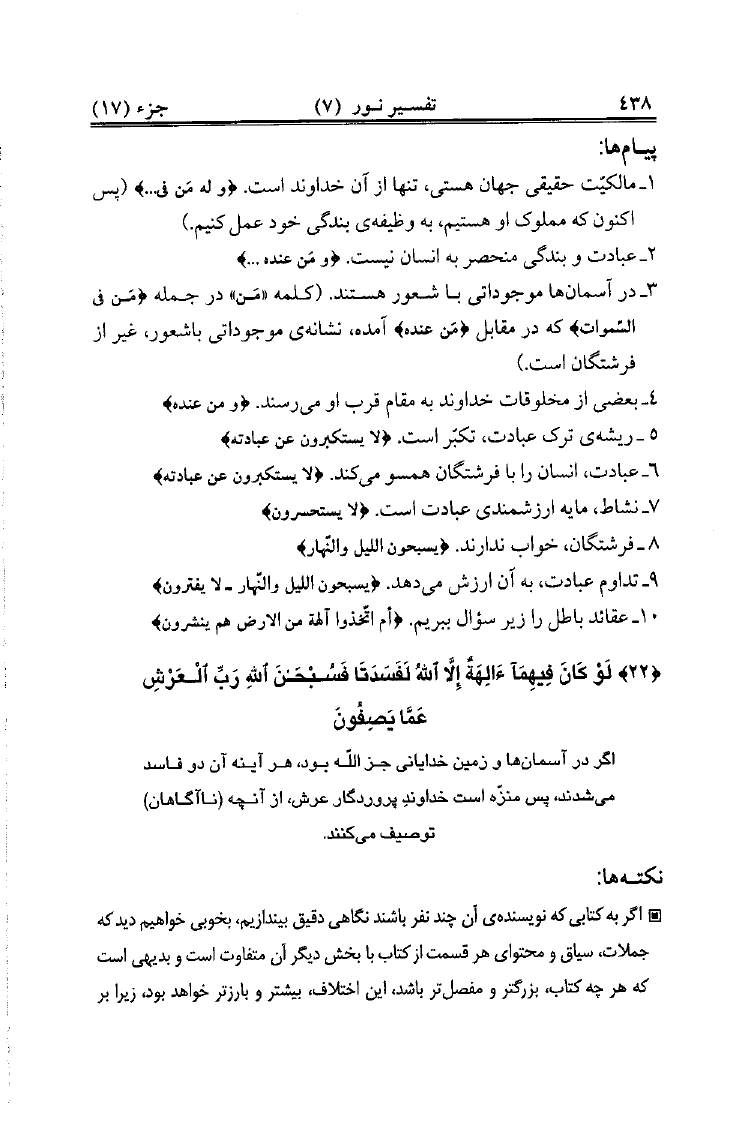 ٤٣٨ تفسیر نور (٧) جزء (١٧)
پیام‌ها:
١ـ مالکیّت حقیقی جهان هستی، تنها از آن خداوند است. ﴿و له مَن فی...﴾ (پس
اکنون که مملوک او هستیم، به وظیفه‌ی بندگی خود عمل کنیم.)
٢ـ عبادت و بندگی منحصر به انسان نیست. ﴿و مَن عنده ...﴾
٣ـ در آسمان‌ها موجوداتی با شعور هستند. (کلمه «مَن» در جمله ﴿مَن فی
السّموات﴾ که در مقابل ﴿مَن عنده﴾ آمده، نشانه‌ی موجوداتی باشعور، غیر از
فرشتگان است.)
٤ـ بعضی از مخلوقات خداوند به مقام قرب او می‌رسند. ﴿و من عنده﴾
٥ ـ ریشه‌ی ترک عبادت، تکبّر است. ﴿لا یستکبرون عن عبادته﴾
٦ـ عبادت، انسان را با فرشتگان همسو می‌کند. ﴿لا یستکبرون عن عبادته﴾
٧ـ نشاط، مایه ارزشمندی عبادت است. ﴿لا یستحسرون﴾
٨ ـ فرشتگان، خواب ندارند. ﴿یسبحون اللیل والنّهار﴾
٩ـ تداوم عبادت، به آن ارزش می‌دهد. ﴿یسبحون اللیل والنّهار ـ لا یفترون﴾
١٠ـ عقائد باطل را زیر سؤال ببریم. ﴿أم اتّخذوا آلهة من الارض هم ینشرون﴾
﴿٢٢﴾ لَوْ كَانَ فِيهِمَآ ءَالِهَةٌ إِلَّا ٱللهُ لَفَسَدَتَا فَسُبْحَـٰنَ ٱللهِ رَبِّ ٱلْعَرْشِ
عَمَّا يَصِفُونَ
اگر در آسمان‌ها و زمین خدایانی جز اللّه بود، هر آینه آن دو فاسد
می‌شدند، پس منزّه است خداوندِ پروردگار عرش، از آنچه (ناآگاهان)
توصیف می‌کنند.
نکته‌ها:
▣ اگر به کتابی که نویسنده‌ی آن چند نفر باشند نگاهی دقیق بیندازیم، بخوبی خواهیم دید که
جملات، سیاق و محتوای هر قسمت از کتاب با بخش دیگر آن متفاوت است و بدیهی است
که هر چه کتاب، بزرگتر و مفصل‌تر باشد، این اختلاف، بیشتر و بارزتر خواهد بود، زیرا بر